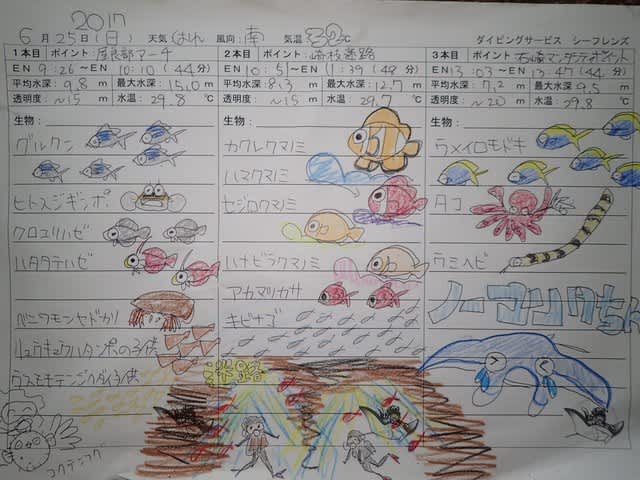 2017
6月25日(日) 天気 はれ 風向: 南 気温 32℃ ダイビングサービス シーフレンズ
1本目 ポイント: 屋良部アーチ
EN 9:26~EN 10:10 (44分)
平均水深: 9.8 m 最大水深: 15.0 m
透明度: ~15 m 水温: 29.8 ℃
生物:
グルクン
ヒトスジギンポ
クロユリハゼ
ハタタテハゼ
ベニワモンヤドカリ
リュウキュウハタンポの子供
ウスモモテンジクダイ子供
コクテンフグ
2本目 ポイント: 崎枝迷路
EN 10:51~EN 11:39 (48分)
平均水深: 8.3 m 最大水深: 12.7 m
透明度: ~15 m 水温: 29.7 ℃
生物:
カクレクマノミ
ハマクマノミ
セジロクマノミ
ハナビラクマノミ
アカマツカサ
キビナゴ
迷路
3本目 ポイント 石崎マンタシティポイント
EN 13:03~EN 13:47 (44分)
平均水深: 7.2 m 最大水深: 9.5 m
透明度: ~20 m 水温: 29.8 ℃
生物:
ウメイロモドキ
タコ
ウミヘビ
ノーマンタちん